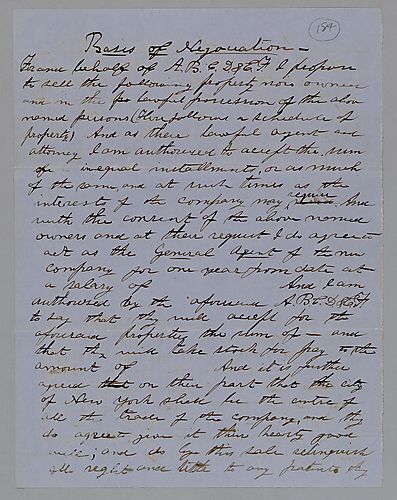 184
Basis of Negotiation —
For and behalf of A. B. C. D & E. F I propose
to sell the following property now owned
and in the lawful possession of the above
named persons (Here follows a schedule of
property) And as their lawful agent and
attorney I am authorized to accept the sum
of – in equal installments, or as much
of the same, and at such times as the
interest of the company may require And
with the consent of the above named
owners and at their request I do agree to
act as the General Agent of the new
company for one year from date at
a salary of And I am
authorized by the aforesaid A B C. D & E F
to say that they will accept for the
aforesaid property the sum of — and
that they will take stock for pay to the
amount of And it is further
agreed on their part that the city
of New York shall be the centre of
all the trades of the company, and they
do agree to give it their hearty good
will; and do by this sale relinquish
all right and title to any patents they